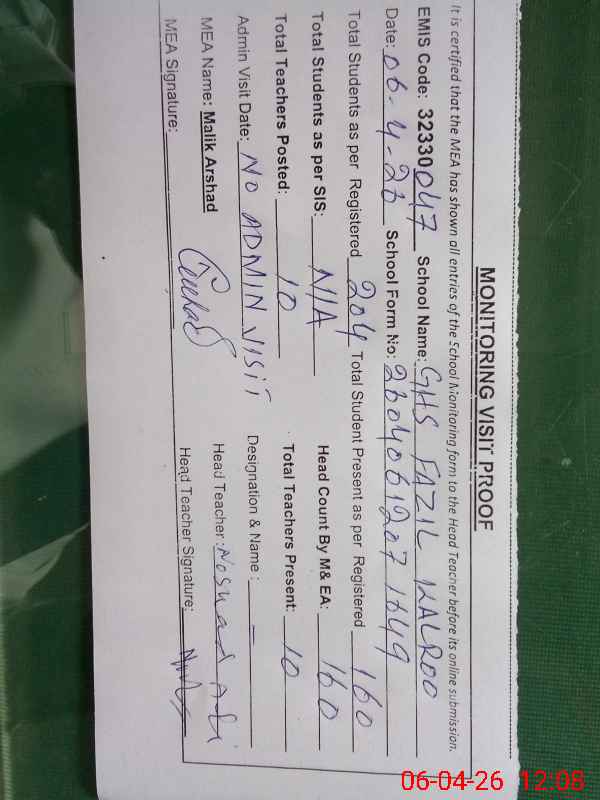 MONITORING VISIT PROOF
It is certified that the MEA has shown all entries of the School Monitoring form to the Head Teacher before its online submission.
EMIS Code: 32330047 School Name: GHS FAZIL KALROO
Date: 06-4-26 School Form No: 2604061207 1649
Total Students as per Registered 204 Total Student Present as per Registered 160
Total Students as per SIS: N/A Head Count By M& EA: 160
Total Teachers Posted: 10 Total Teachers Present: 10
Admin Visit Date: NO ADMIN VISIT Designation & Name : –
MEA Name: Malik Arshad Head Teacher: Noshad Ali
MEA Signature: Head Teacher Signature:
06-04-26 12:08